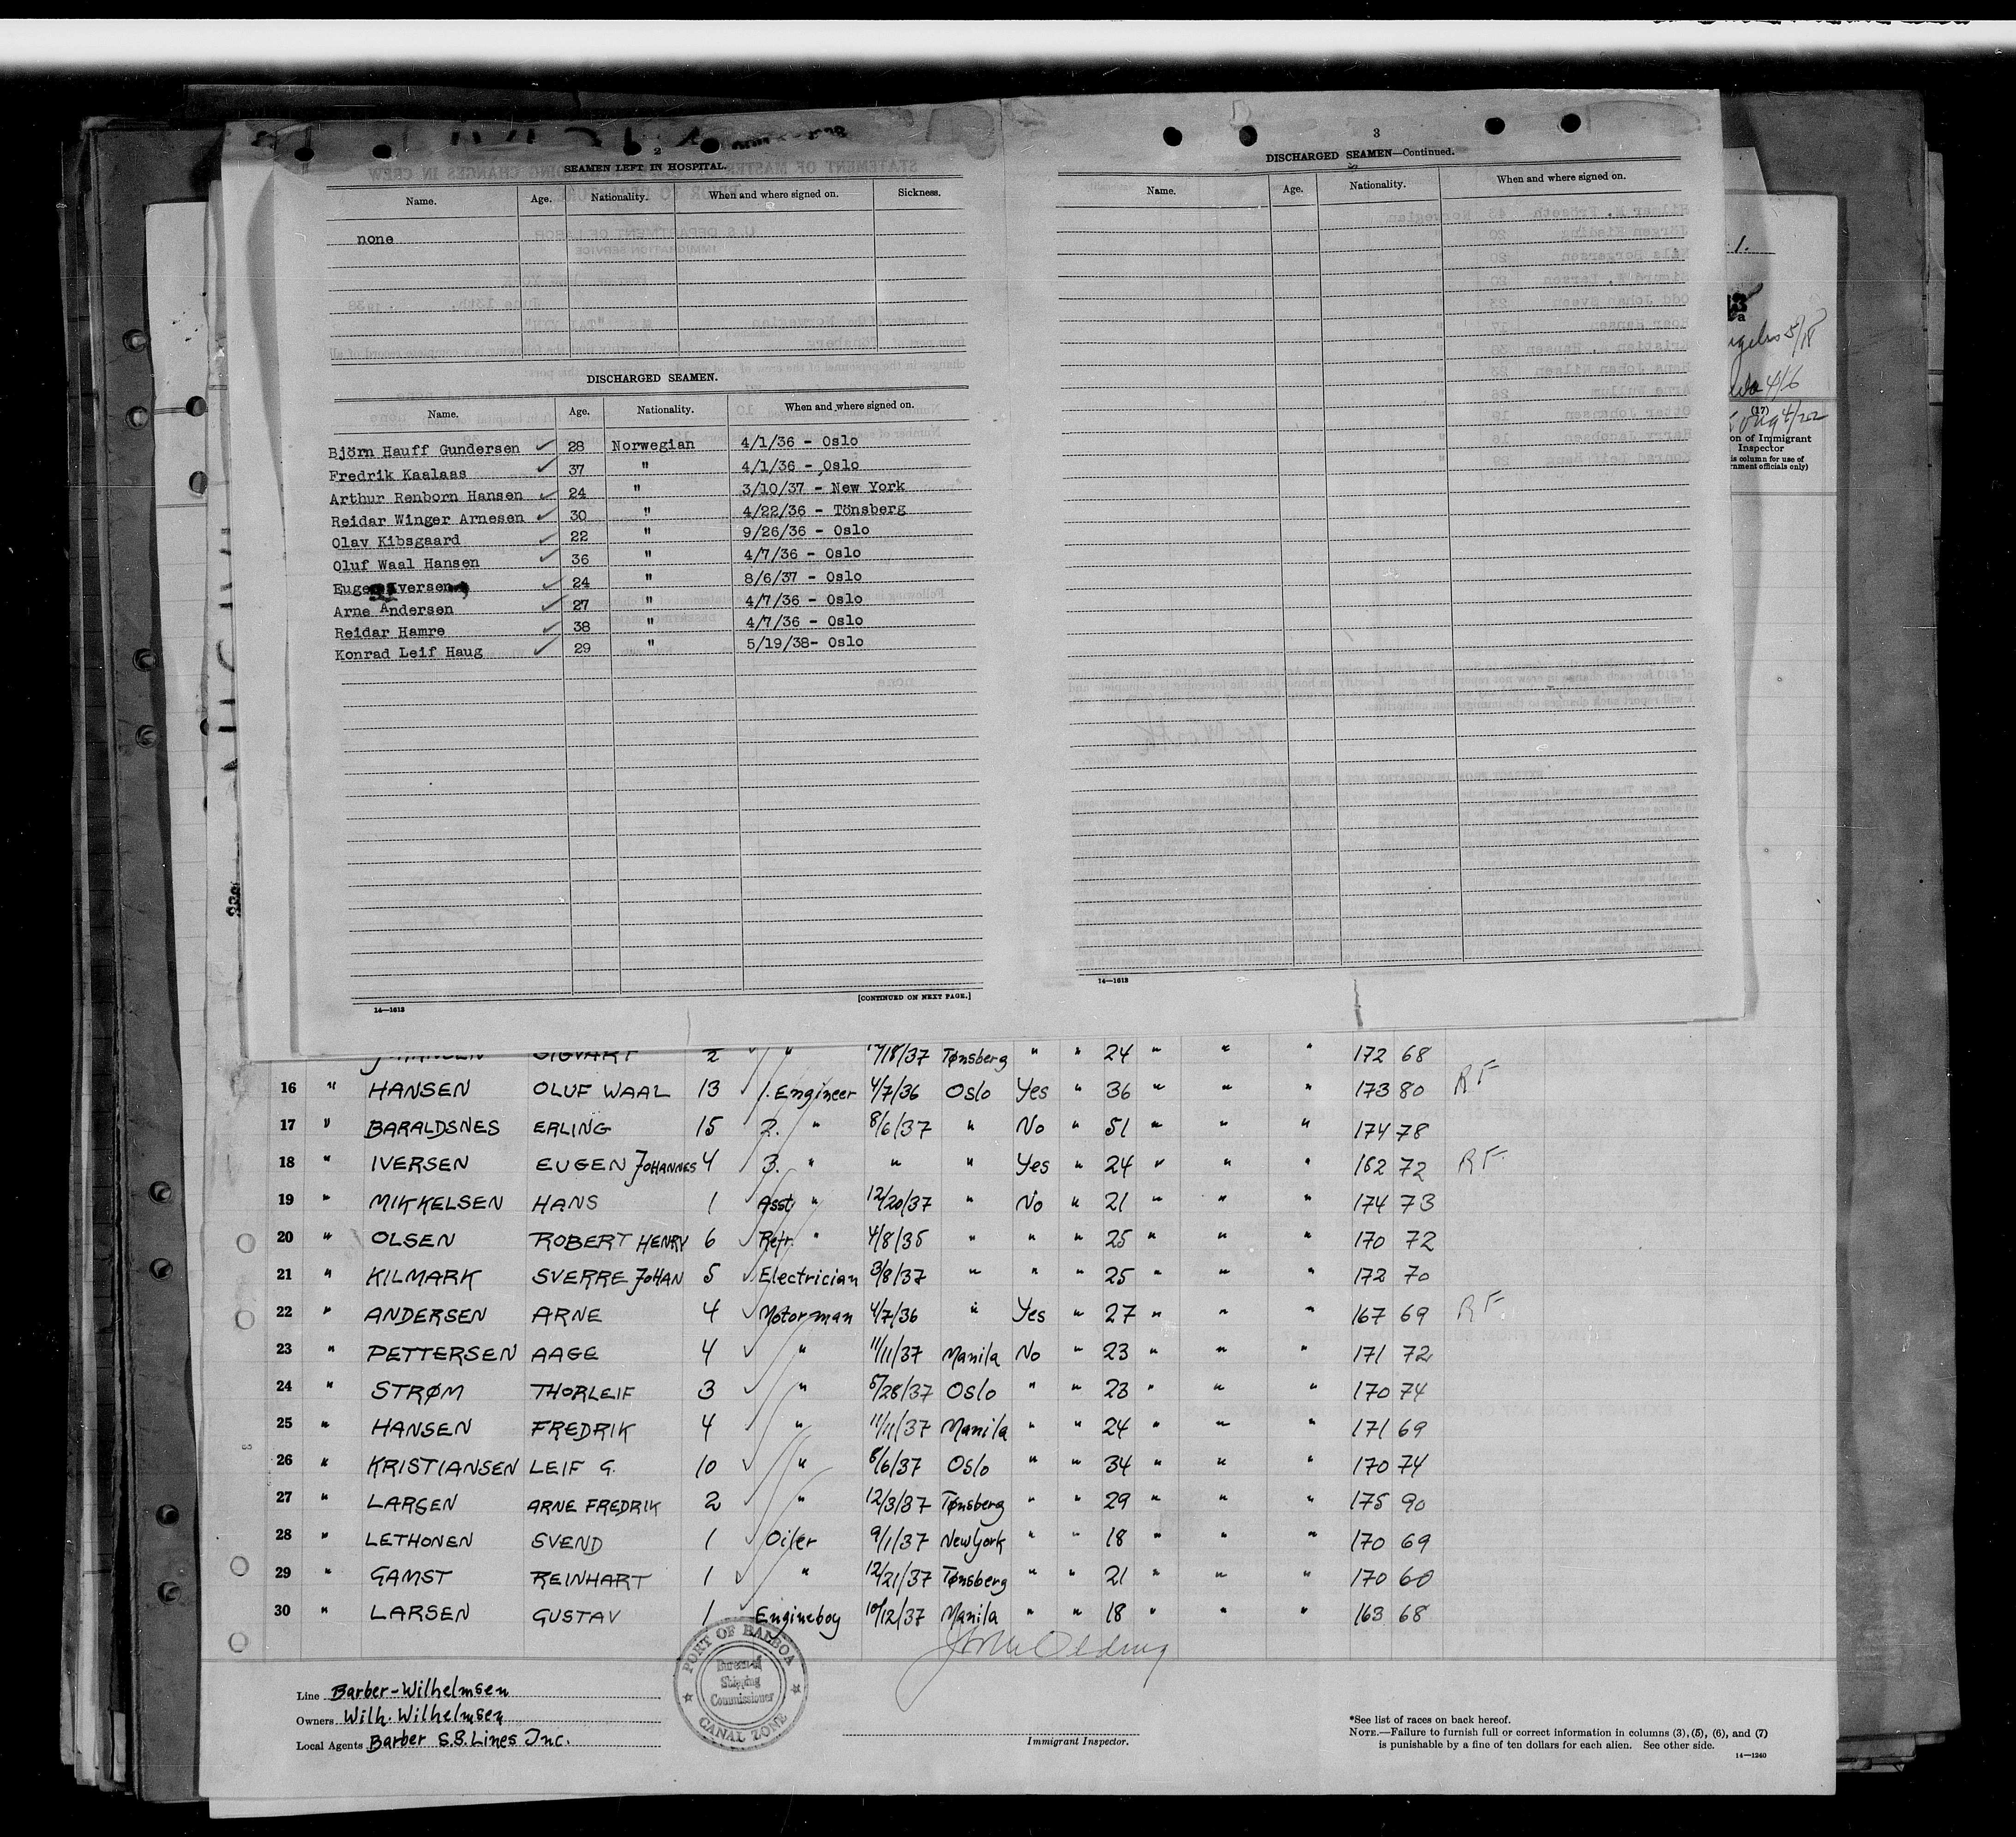 2
SEAMEN LEFT IN HOSPITAL.
Name. Age. Nationality. When and where signed on. Sickness.
none
DISCHARGED SEAMEN.
Name. Age. Nationality. When and where signed on.
Björn Hauff Gundersen ✓ 28 Norwegian 4/1/36 - Oslo
Fredrik Kaalaas ✓ 37 " 4/1/36 - Oslo
Arthur Renborn Hansen ✓ 24 " 3/10/37 - New York
Reidar Winger Arnesen ✓ 30 " 4/22/36 - Tönsberg
Olav Kibsgaard ✓ 22 " 9/26/36 - Oslo
Oluf Waal Hansen ✓ 36 " 4/7/36 - Oslo
Eugen Iversen ✓ 24 " 8/6/37 - Oslo
Arne Andersen ✓ 27 " 4/7/36 - Oslo
Reidar Hamre ✓ 38 " 4/7/36 - Oslo
Konrad Leif Haug ✓ 29 " 5/19/38- Oslo
[CONTINUED ON NEXT PAGE.]
14—1613
3
DISCHARGED SEAMEN—Continued.
Name. Age. Nationality. When and where signed on.
14—1613
(17)
on of Immigrant
Inspector
is column for use of
rnment officials only)
SIGVART 2 ✓ " /18/37 Tønsberg " " 24 " " " 172 68
16 " HANSEN OLUF WAAL 13 ✓ 1. Engineer 4/7/36 Oslo Yes " 36 " " " 173 80 RF
17 " BARALDSNES ERLING 15 2. " 8/6/37 " No " 51 " " " 174 78
18 " IVERSEN EUGEN JOHANNES 4 3. " " " Yes " 24 " " " 162 72 RF
19 " MIKKELSEN HANS 1 Asst " 12/20/37 " No " 21 " " " 174 73
20 " OLSEN ROBERT HENRY 6 ✓ Refr. " 4/8/35 " " " 25 " " " 170 72
21 " KILMARK SVERRE JOHAN 5 ✓ Electrician 3/8/37 " " " 25 " " " 172 70
22 " ANDERSEN ARNE 4 ✓ Motorman 4/7/36 " Yes " 27 " " " 167 69 RF
23 " PETTERSEN AAGE 4 ✓ " 11/11/37 Manila No " 23 " " " 171 72
24 " STRØM THORLEIF 3 ✓ " 5/28/37 Oslo " " 23 " " " 170 74
25 " HANSEN FREDRIK 4 ✓ " 11/11/37 Manila " " 24 " " " 171 69
26 " KRISTIANSEN LEIF G. 10 ✓ " 8/6/37 Oslo " " 34 " " " 170 74
27 " LARSEN ARNE FREDRIK 2 ✓ " 12/3/37 Tønsberg " " 29 " " " 175 90
28 " LETHONEN SVEND 1 ✓ Oiler 9/1/37 New York " " 18 " " " 170 69
29 " GAMST REINHART 1 ✓ " 12/21/37 Tønsberg " " 21 " " " 170 60
30 " LARSEN GUSTAV 1 ✓ Engineboy 10/12/37 Manila " " 18 " " " 163 68
PORT OF BALBOA
Bureau of
Shipping
Commissioner
CANAL ZONE
Line Barber-Wilhelmsen
Owners Wilh. Wilhelmsen
Local Agents Barber S.S. Lines Inc.
Immigrant Inspector.
*See list of races on back hereof.
NOTE.—Failure to furnish full or correct information in columns (3), (5), (6), and (7)
is punishable by a fine of ten dollars for each alien. See other side.
14—1240